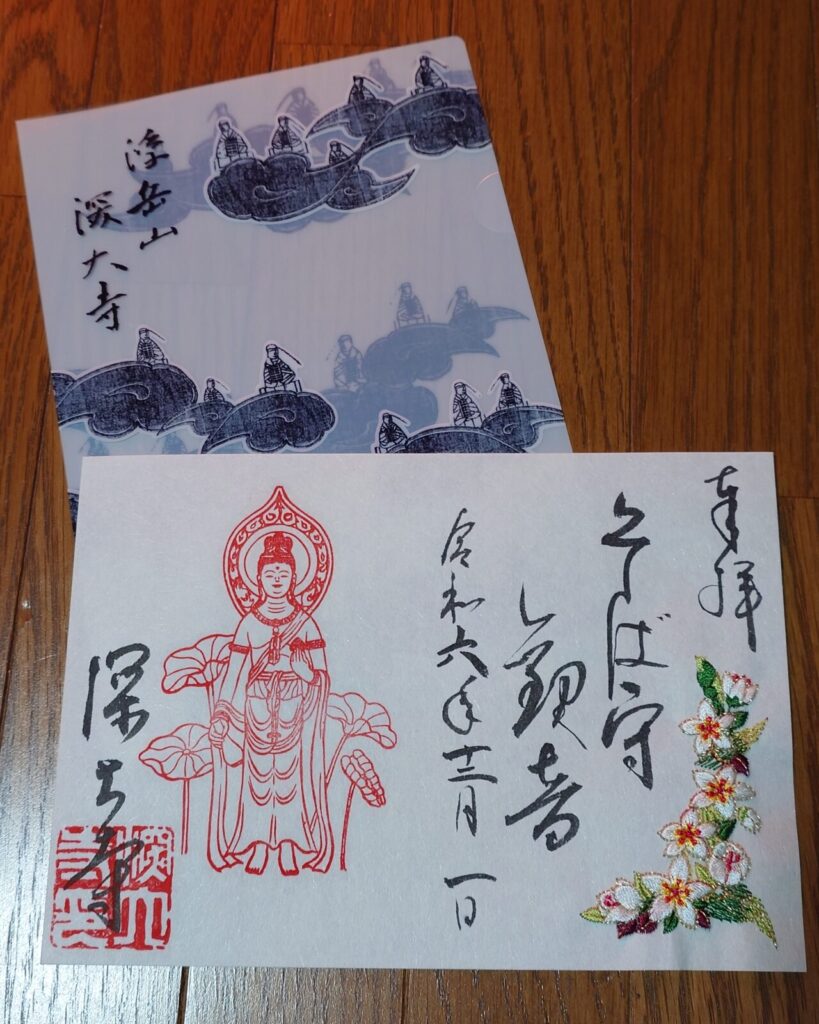 浮岳山
深大寺
奉拝
そば守
観音
令和六年十二月一日
深大寺